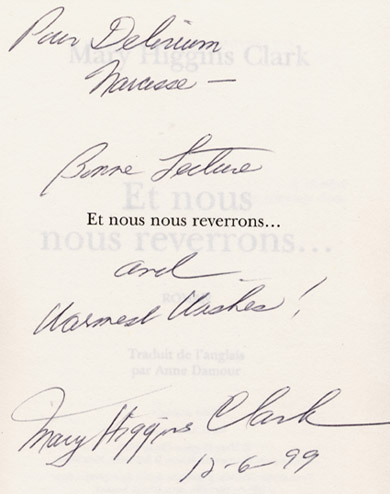 Pour Delirium
Mary Higgins Clark
Narcisse —
Bonne Lecture
Et nous
Et nous nous reverrons...
nous reverrons...
and
ROMAN
Warmest Wishes!
Traduit de l'anglais
par Anne Damour
Mary Higgins Clark
12-6-99